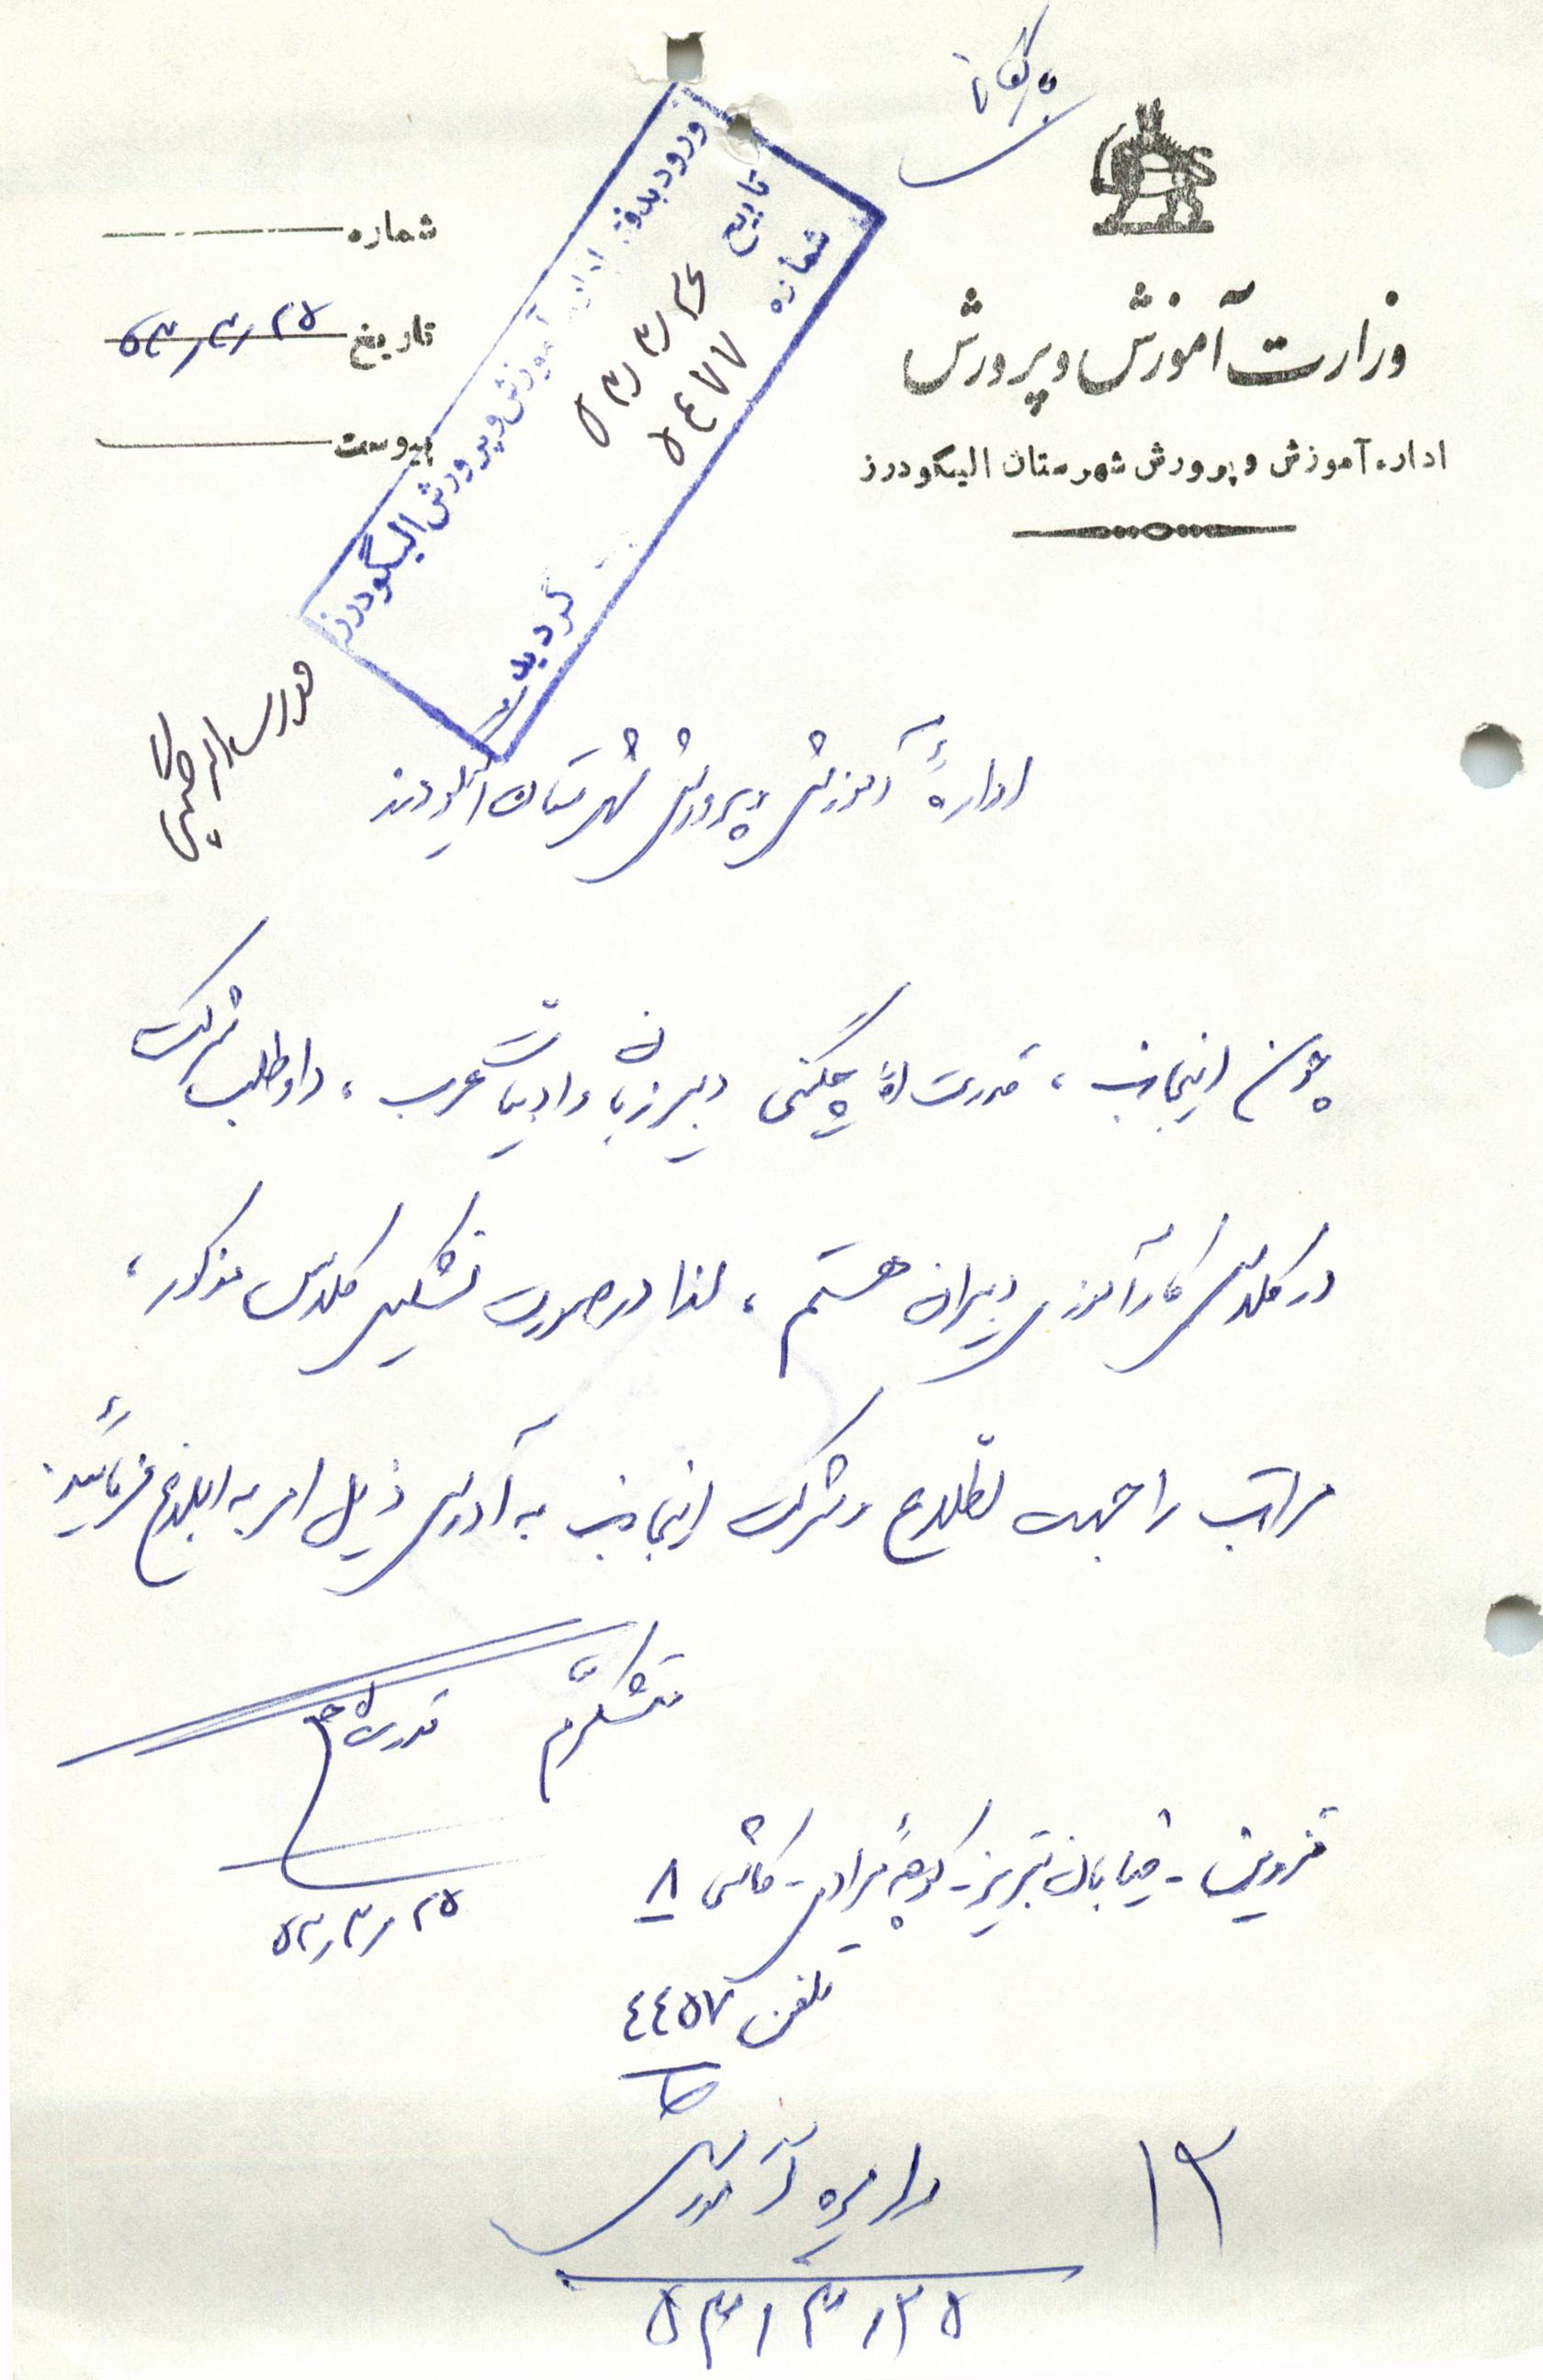 بایگانی
وزارت آموزش و پرورش
اداره آموزش و پرورش شهرستان الیگودرز
شماره
تاریخ ۵۳٫۳٫۲۵
پیوست
ورود بدفتر اداره آموزش و پرورش الیگودرز
تاریخ ۵۳٫۳٫۲۶
شماره ۵۴۷۷
گردید
ادارهٔ آموزش و پرورش شهرستان الیگودرز
چون اینجانب ، قدرت اله چگنی دبیر زبان و ادبیات عرب ، داوطلب شرکت
در کلاس کارآموزی دبیران هستم ، لذا در صورت تشکیل کلاس مذکور ،
مراتب را جهت اطلاع و شرکت اینجانب به آدرس ذیل امر به ابلاغ فرمائید.
متشکرم
۵۳٫۳٫۲۵
قزوین - خیابان تبریز - کوچهٔ مرادی - کاشی ۸
تلفن ۴۴۵۷
۱۳
دایره آموزش
۵۳٫۳٫۲۵